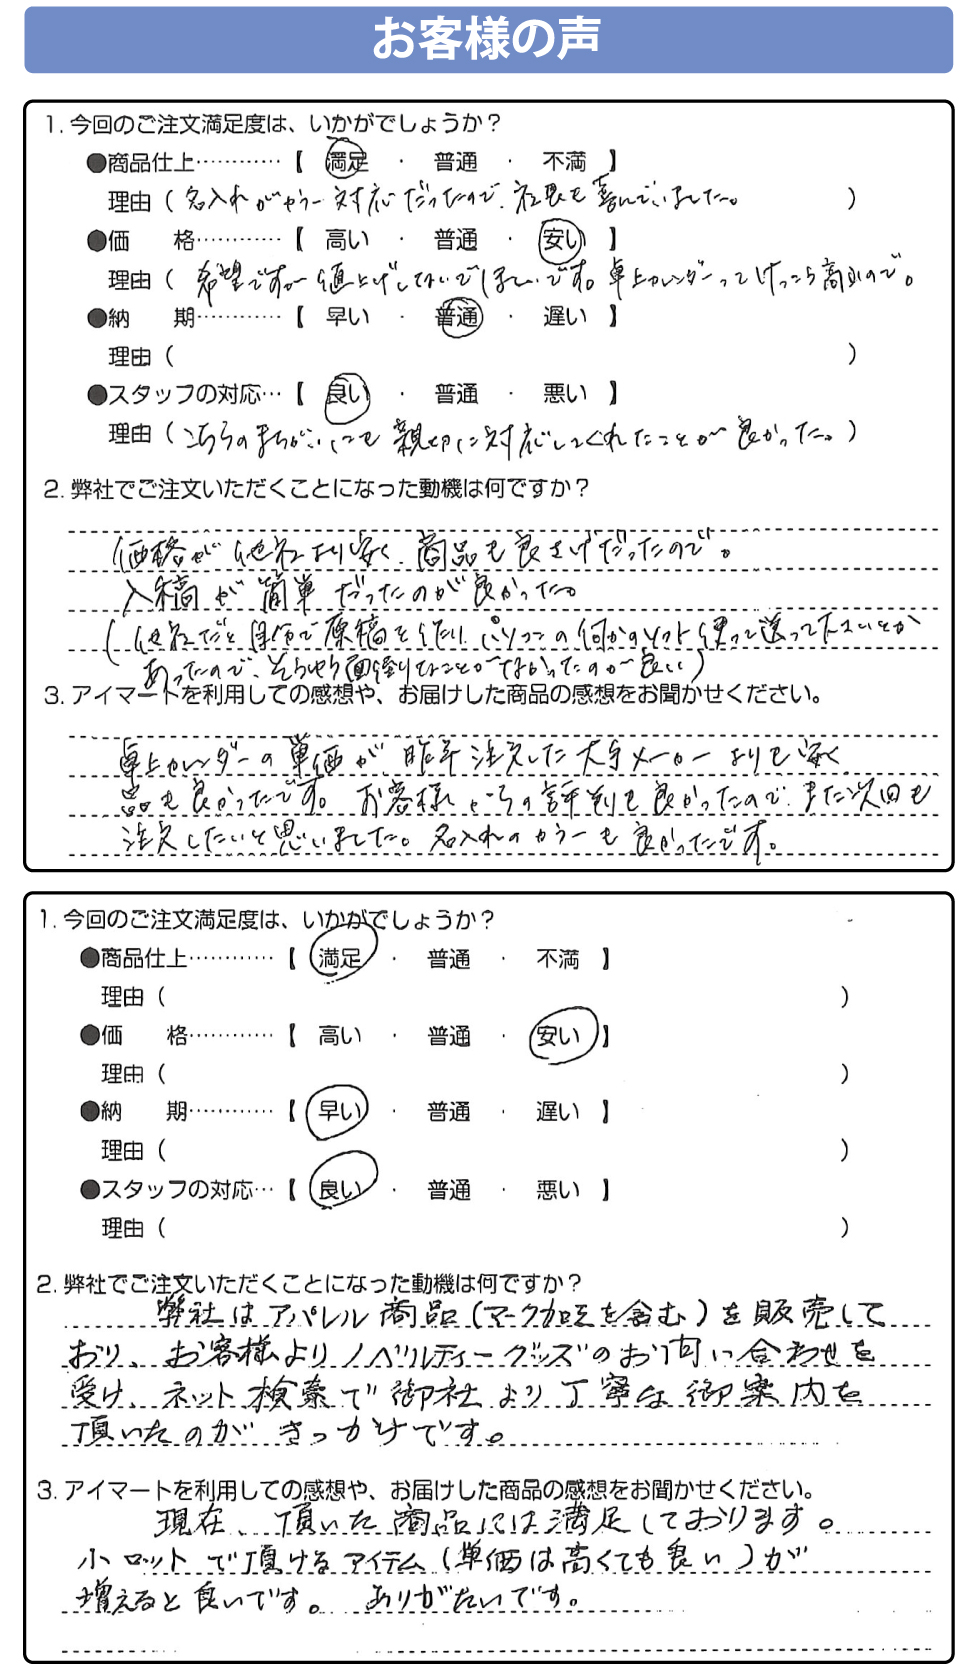 お客様の声
1. 今回のご注文満足度は、いかがでしょうか？
●商品仕上…………【 満足 ・ 普通 ・ 不満 】
理由（ 名入れがカラー対応だったので、社長も喜んでいました。 ）
●価 格…………【 高い ・ 普通 ・ 安い 】
理由（ 希望ですが値上げしないでほしいです。卓上カレンダーってけっこう高いので。
●納 期…………【 早い ・ 普通 ・ 遅い 】
理由（ ）
●スタッフの対応…【 良い ・ 普通 ・ 悪い 】
理由（ こちらのまちがいにも親切に対応してくれたことが良かった。）
2. 弊社でご注文いただくことになった動機は何ですか？
価格が他社より安く、商品も良さげだったので。
入稿が簡単だったのが良かった。
（他社だと自分で原稿を作たり、パソコンの何かのソフト使って送って下さいとか
あったので、そういう面倒なことがなかったのが良い）
3. アイマートを利用しての感想や、お届けした商品の感想をお聞かせください。
卓上カレンダーの単価が、昨年注文した大手メーカーよりも安く、
品も良かったです。お客様からの評判も良かったので、また次回も
注文したいと思いました。名入れのカラーも良かったです。
1. 今回のご注文満足度は、いかがでしょうか？
●商品仕上…………【 満足 ・ 普通 ・ 不満 】
理由（ ）
●価 格…………【 高い ・ 普通 ・ 安い 】
理由（ ）
●納 期…………【 早い ・ 普通 ・ 遅い 】
理由（ ）
●スタッフの対応…【 良い ・ 普通 ・ 悪い 】
理由（ ）
2. 弊社でご注文いただくことになった動機は何ですか？
弊社はアパレル商品（マーク加工を含む）を販売して
おり、お客様よりノベルティーグッズのお問い合わせを
受け、ネット検索で御社より丁寧な御案内を
頂いたのがきっかけです。
3. アイマートを利用しての感想や、お届けした商品の感想をお聞かせください。
現在、頂いた商品には満足しております。
小ロットで頂けるアイテム（単価は高くても良い）が
増えると良いです。 ありがたいです。